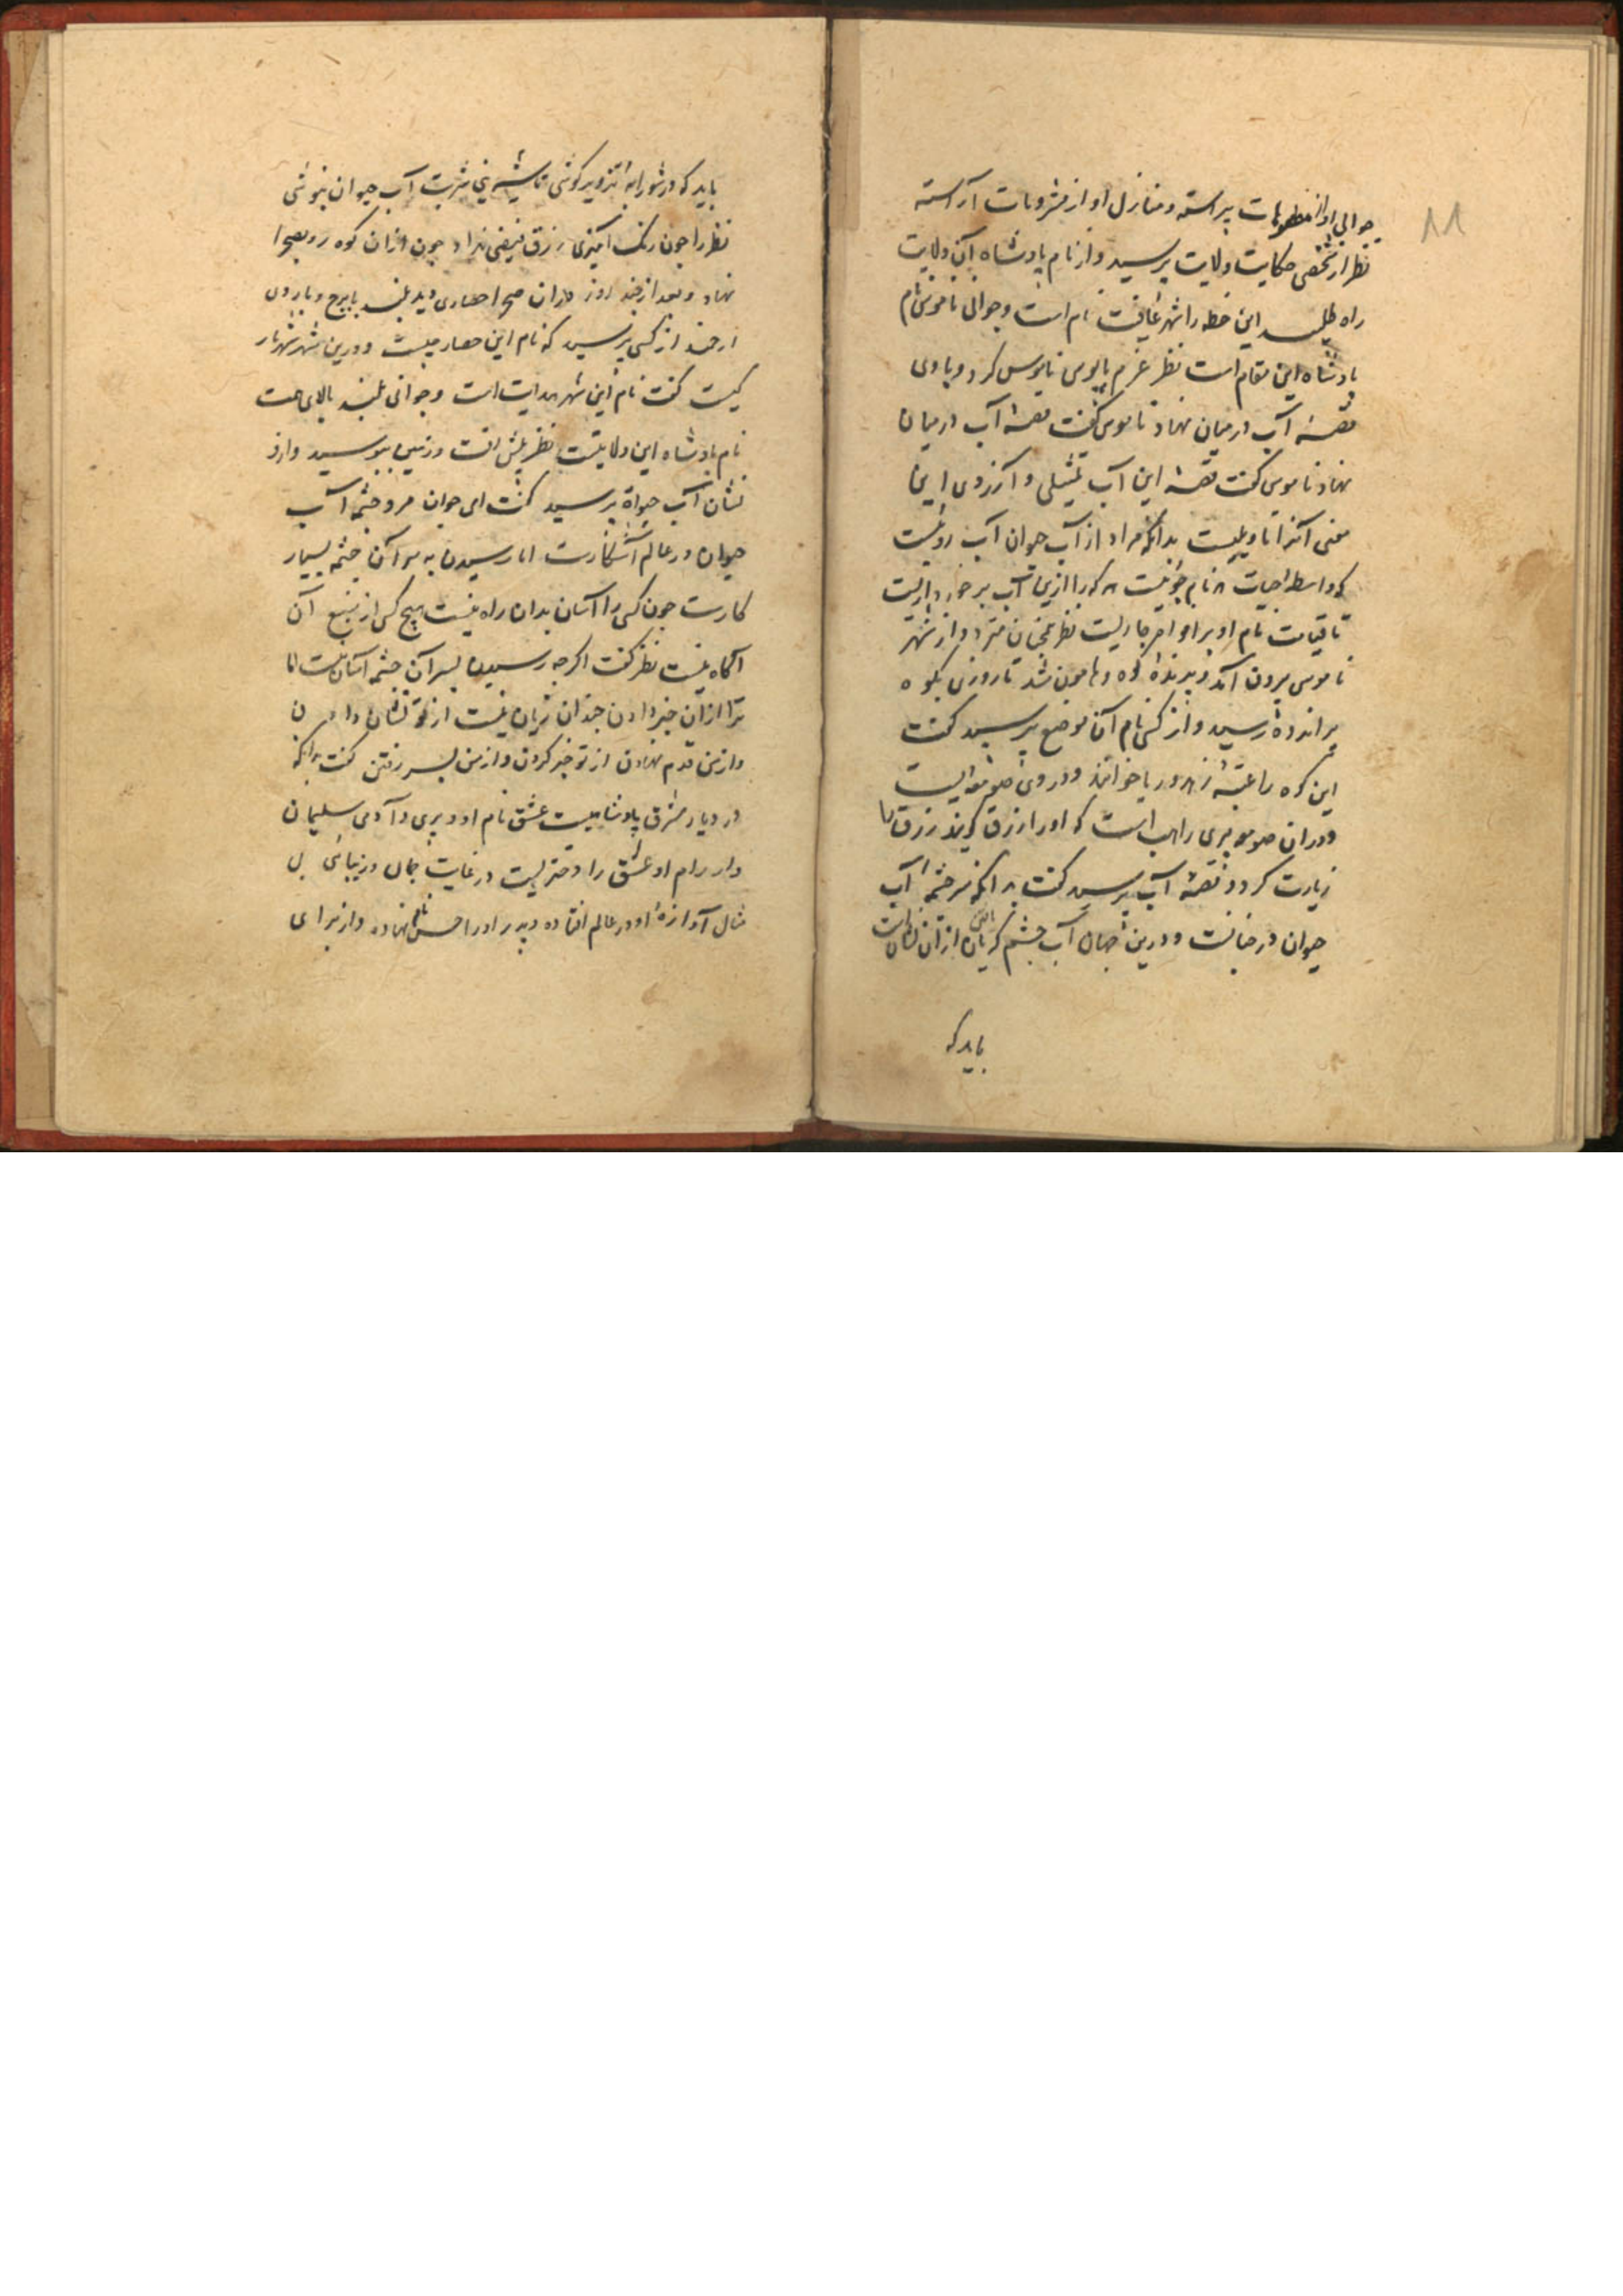 ۱۱
حوالی او از مطعومات پیراسته و منازل او از مشروبات آراسته
نظر از شخصی حکایت ولایت پرسید و از نام پادشاه آن ولایت
راه طلبید این خطه را شهر عافیت نام است و حوالی ناموس نام
پادشاه این مقام است نظر عزم پابوس ناموس کرد و با وی
قصهٔ آب در میان نهاد ناموس گفت قصهٔ آب در میان
نهاد ناموس گفت قصهٔ این آب تمثیلی و آرزوی این
معنی آنرا تاویلیست بدانکه مراد از آب حیوان آب رویست
که واسطهٔ حیات نام جوئیست هر که را ازین آب برخورداریست
تا قیامت نام او بر افواه جاریست نظر همچنان متردد از شهر
ناموس بیرون آمد و پرندهٔ کوه و هامون شد تا روزی بکوه
پر اندوه رسید و از کسی نام آن موضع پرسید گفت
این کوه را عقبهٔ زهد و ریا خوانند و در وی صومعه ایست
و در آن صومعه پیری راهب است که او را رزق گویند رزق را
زیارت کرد و قصهٔ آب پرسید گفت بدانکه سرچشمهٔ آب
حیوان در جنانست و درین جهان آب چشم گریان از آن نشانست
باید که
باید که در شورابه تزویر کوشی تا شیرینی شربت آب حیوان بنوشی
نظر را چون رنگ آمیزی رزق فیضی نداد چون از آن کوه رو بصحرا
نهاد و بعد از چند روز در آن صحرا حصاری دید بلند با برج و باروی
ارجمند از کسی پرسید که نام این حصار چیست و درین شهر شهریار
کیست گفت نام این شهر هدایت است و جوانی بلند بالای همت
نام پادشاه این ولایتست نظر پیش رفت و زمین ببوسید و از و
نشان آب حیوة پرسید گفت ای جوان مرد چشمهٔ آب
حیوان در عالم آشکارست اما رسیدن به سر آن چشمه بسیار
کارست چون کسی را آسان بدان راه نیست هیچ کس از منبع آن
آگاه نیست نظر گفت اگر چه رسیدن بسر آن چشمه آسان نیست اما
ترا از آن خبر دادن چندان زیان نیست از تو نشان دادن
و از من قدم نهادن از تو خبر کردن و از من بسر رفتن گفت بدانکه
در دیار مشرق پادشاهیست عشق نام او و پری و آدمی سلیمان
وار رام او عشق را دختریست در غایت جمال و زیبائی بی
مثال آوازهٔ او در عالم افتاده و پدر او را حسن نام نهاده و از برای